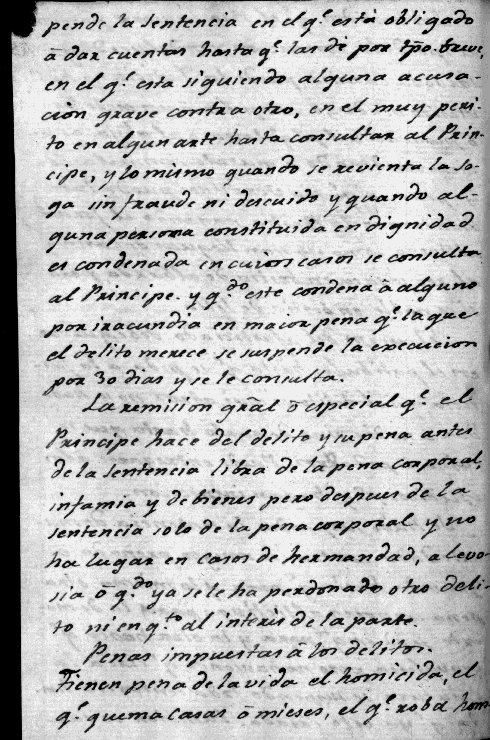 pende la sentencia en el q.^e está obligado
ā dar cuentas hasta q.^e las dé por tpō. breve,
en el q.^e esta siguiendo alguna acusa-
cion grave contra otro, en el muy peri-
to en algun arte hasta consultar al Prin-
cipe, y lo mismo quando se revienta la so-
ga sin fraude ni descuido y quando al-
guna persona constituida en dignidad
es condenada en cuios casos se consulta
al Principe. y q.^do este condena ā alguno
por iracundia en maior pena q.^e la que
el delito merece se suspende la execucion
por 30 dias y se le consulta.
La remision grāl ō especial q.^e el
Principe hace del delito y su pena antes
de la sentencia libra de la pena corporal,
infamia y de bienes pero despues de la
sentencia solo de la pena corporal y no
ha lugar en casos de hermandad, alevo-
sia ō q.^do ya se le ha perdonado otro deli-
to ni en q.^to al interés de la parte.
Penas impuestas ā los delitos.
Tienen pena de la vida el homicida, el
q.^e quema casas ō mieses, el q.^e roba hom